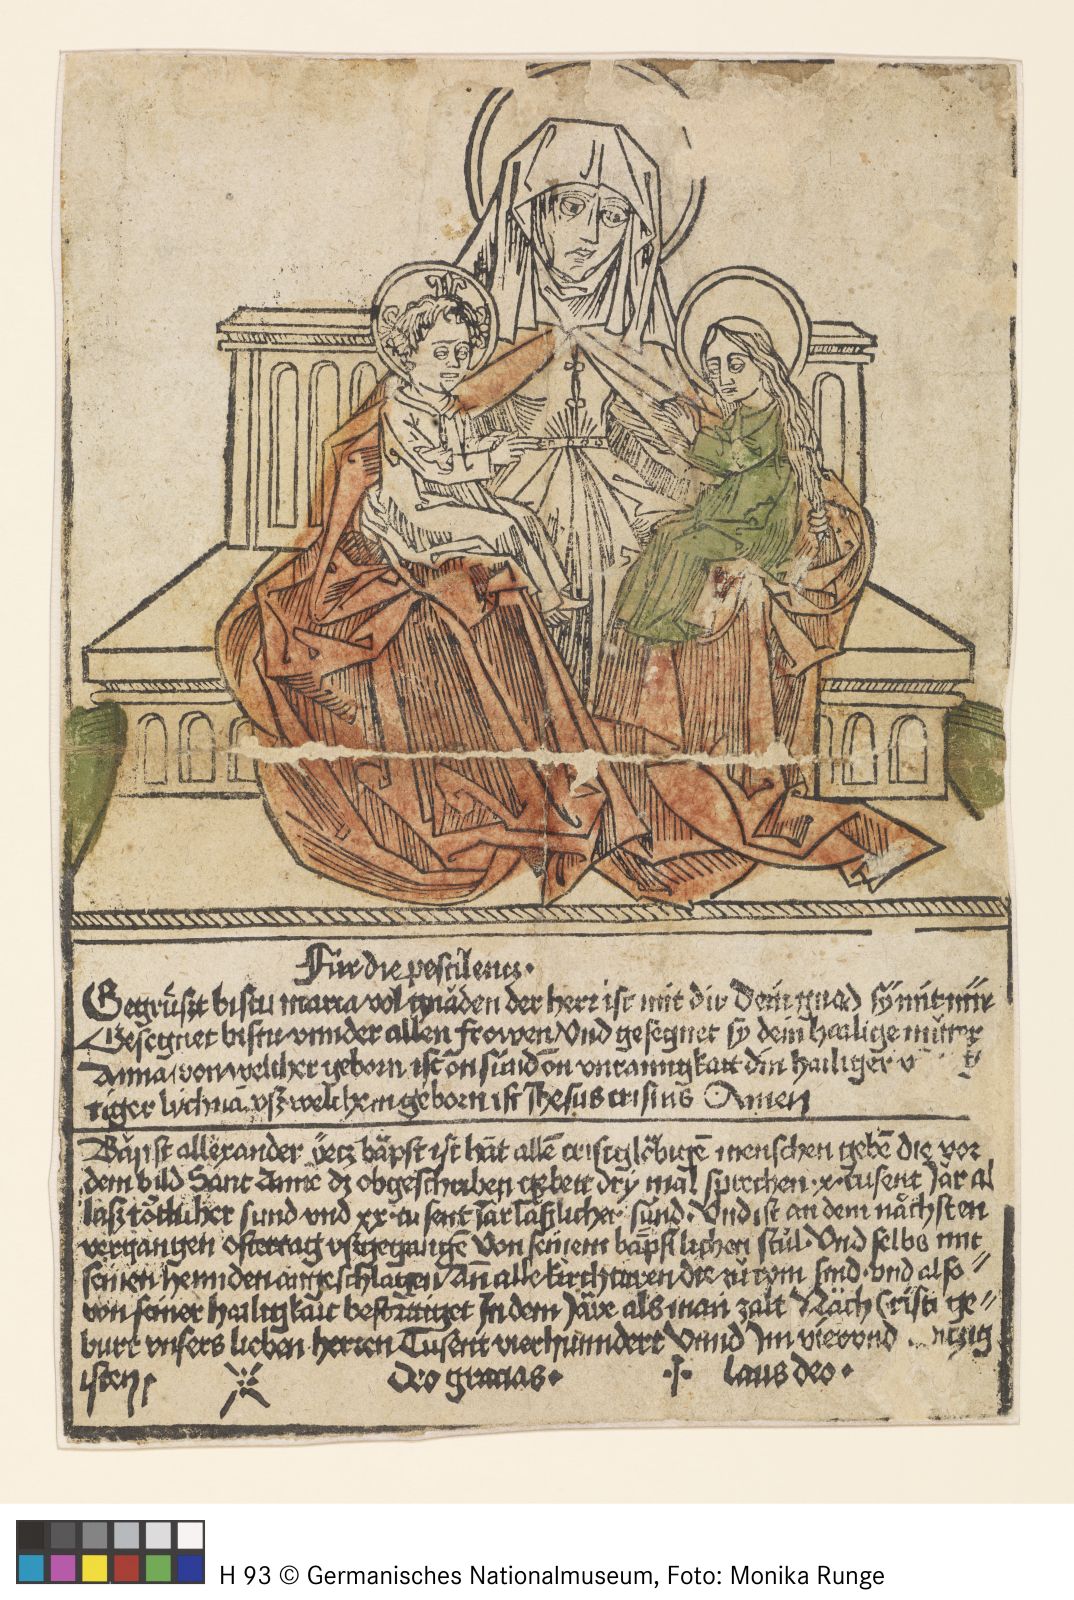 Für die pestilencz·
Gegrüszt bistu maria vol gnäden der herr ist mit dir Dein gnad sy mit mir
Gesegnet bistu vnnder allen frowen Vnd gesegnet sy dein hailige mütter
Anna von welcher geborn ist on sünd on vnrainigkait din hailiger
tiger lychnā vsz welchem geborn ist Jhesus cristus Amen
Bäpst allexander yetz bäpst ist hät allē cristglöbigē menschen gebē die vor
dem bild Sant Anne dz obgeschriben gebett dry mal sprechen ·x· tusent Jär al
lasz tötlicher sünd vnd xx· tusent Jar läszlicher sünd· Vnd ist an dem nächsten
vergangen ostertag vszgegangē Von seinem bäpstlichen stül· Vnd selbs mit
seinen hennden angeschlagen An alle kirchtüren die zü rom sind· vnd also
von seiner hailigkait bestätiget In dem Järe als man zalt Näch Cristi ge
burt vnsers lieben herren Tusent vierhunndert Vnnd Jm viervnd
isten
Deo gracias· laus deo·
H 93 © Germanisches Nationalmuseum, Foto: Monika Runge